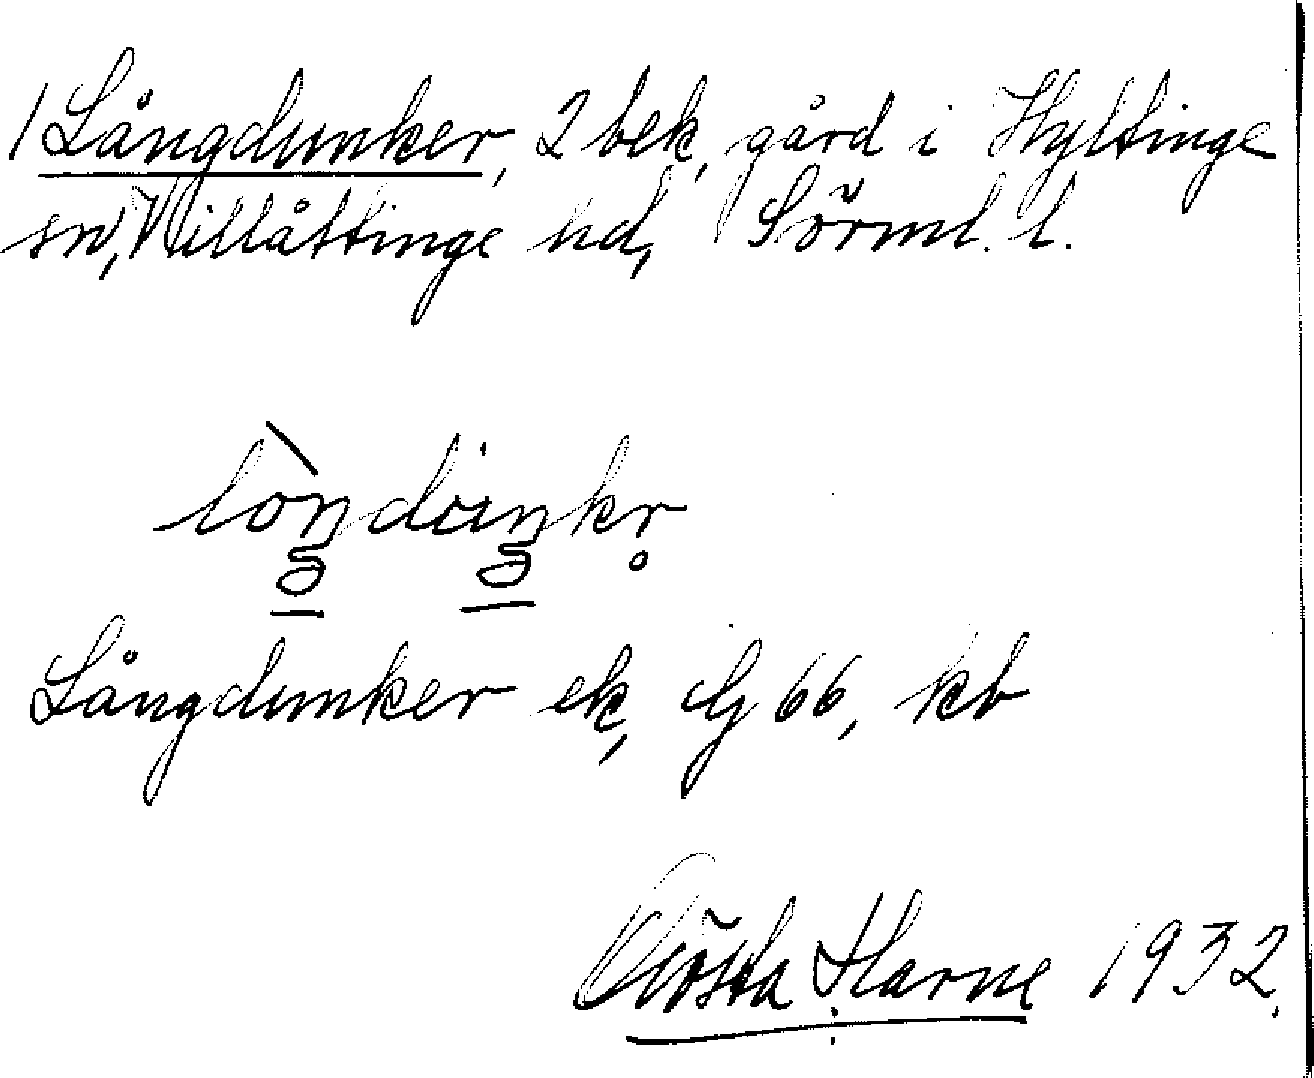 1 Långdunker, 2 bek, gård i Hyltinge
sn, Villåttinge hd, Sörml. l.
lòŋduŋkr̥
Långdunker ek, G 66, kb
Gösta Harne 1932.